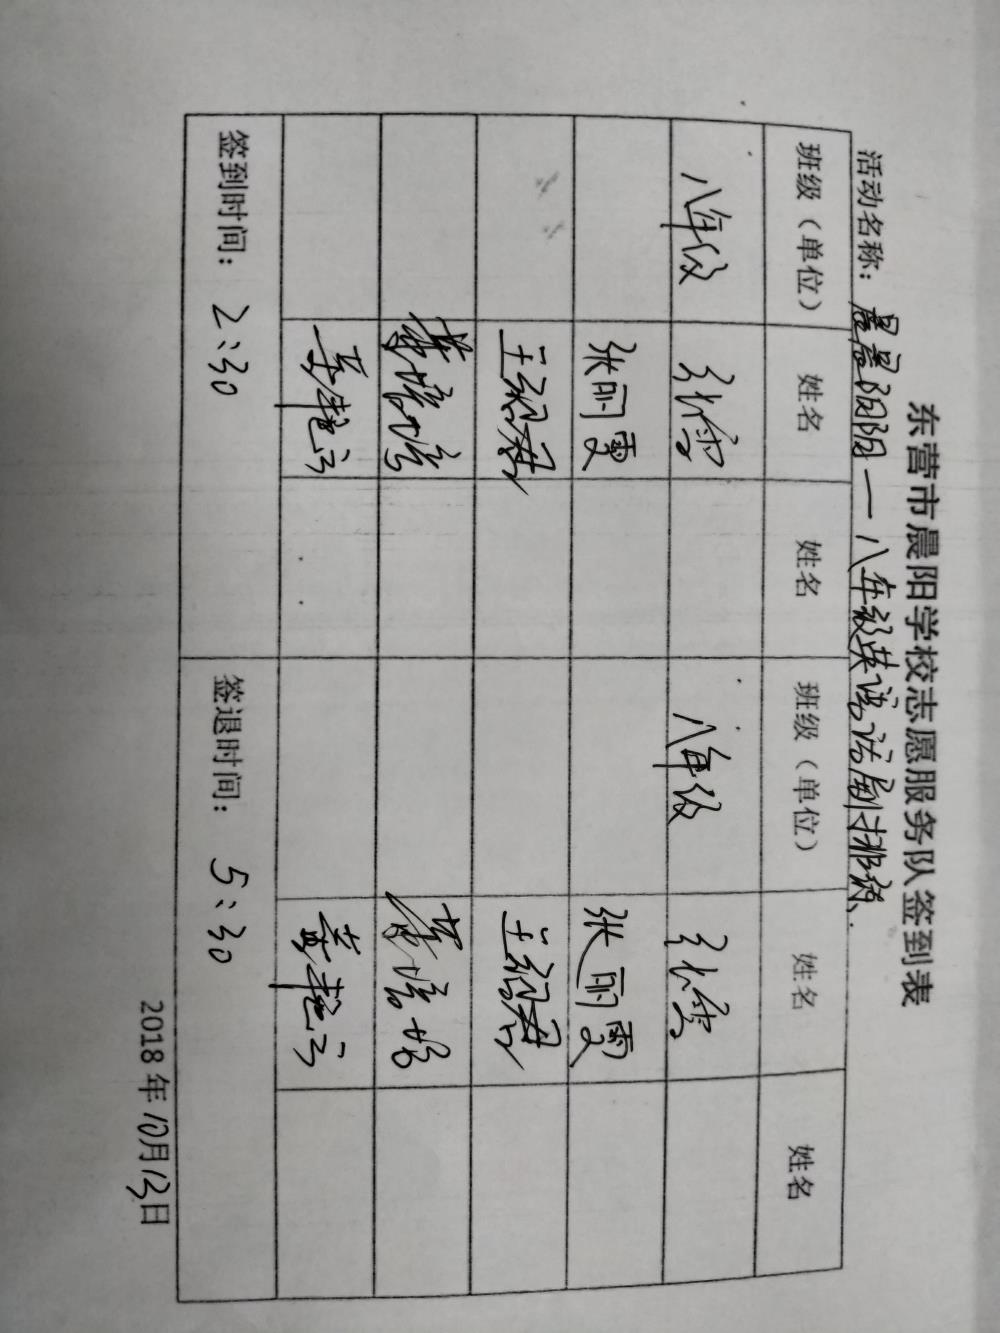 东营市晨阳学校志愿服务队签到表
活动名称：晨晨阳阳—八年级英语话剧排演
班级（单位） 姓名 姓名 班级（单位） 姓名 姓名
八年级 张雪 八年级 张雪
张丽雯 张丽雯
王绍君 王绍君
签到时间：2:30 签退时间：5:30
2018年10月13日